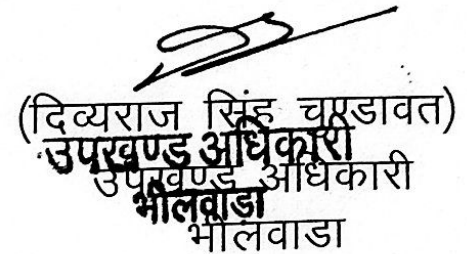 (दिव्यराज सिंह चण्डावत)
उपखण्ड अधिकारी
उपखण्ड अधिकारी
भीलवाडा
भीलवाडा